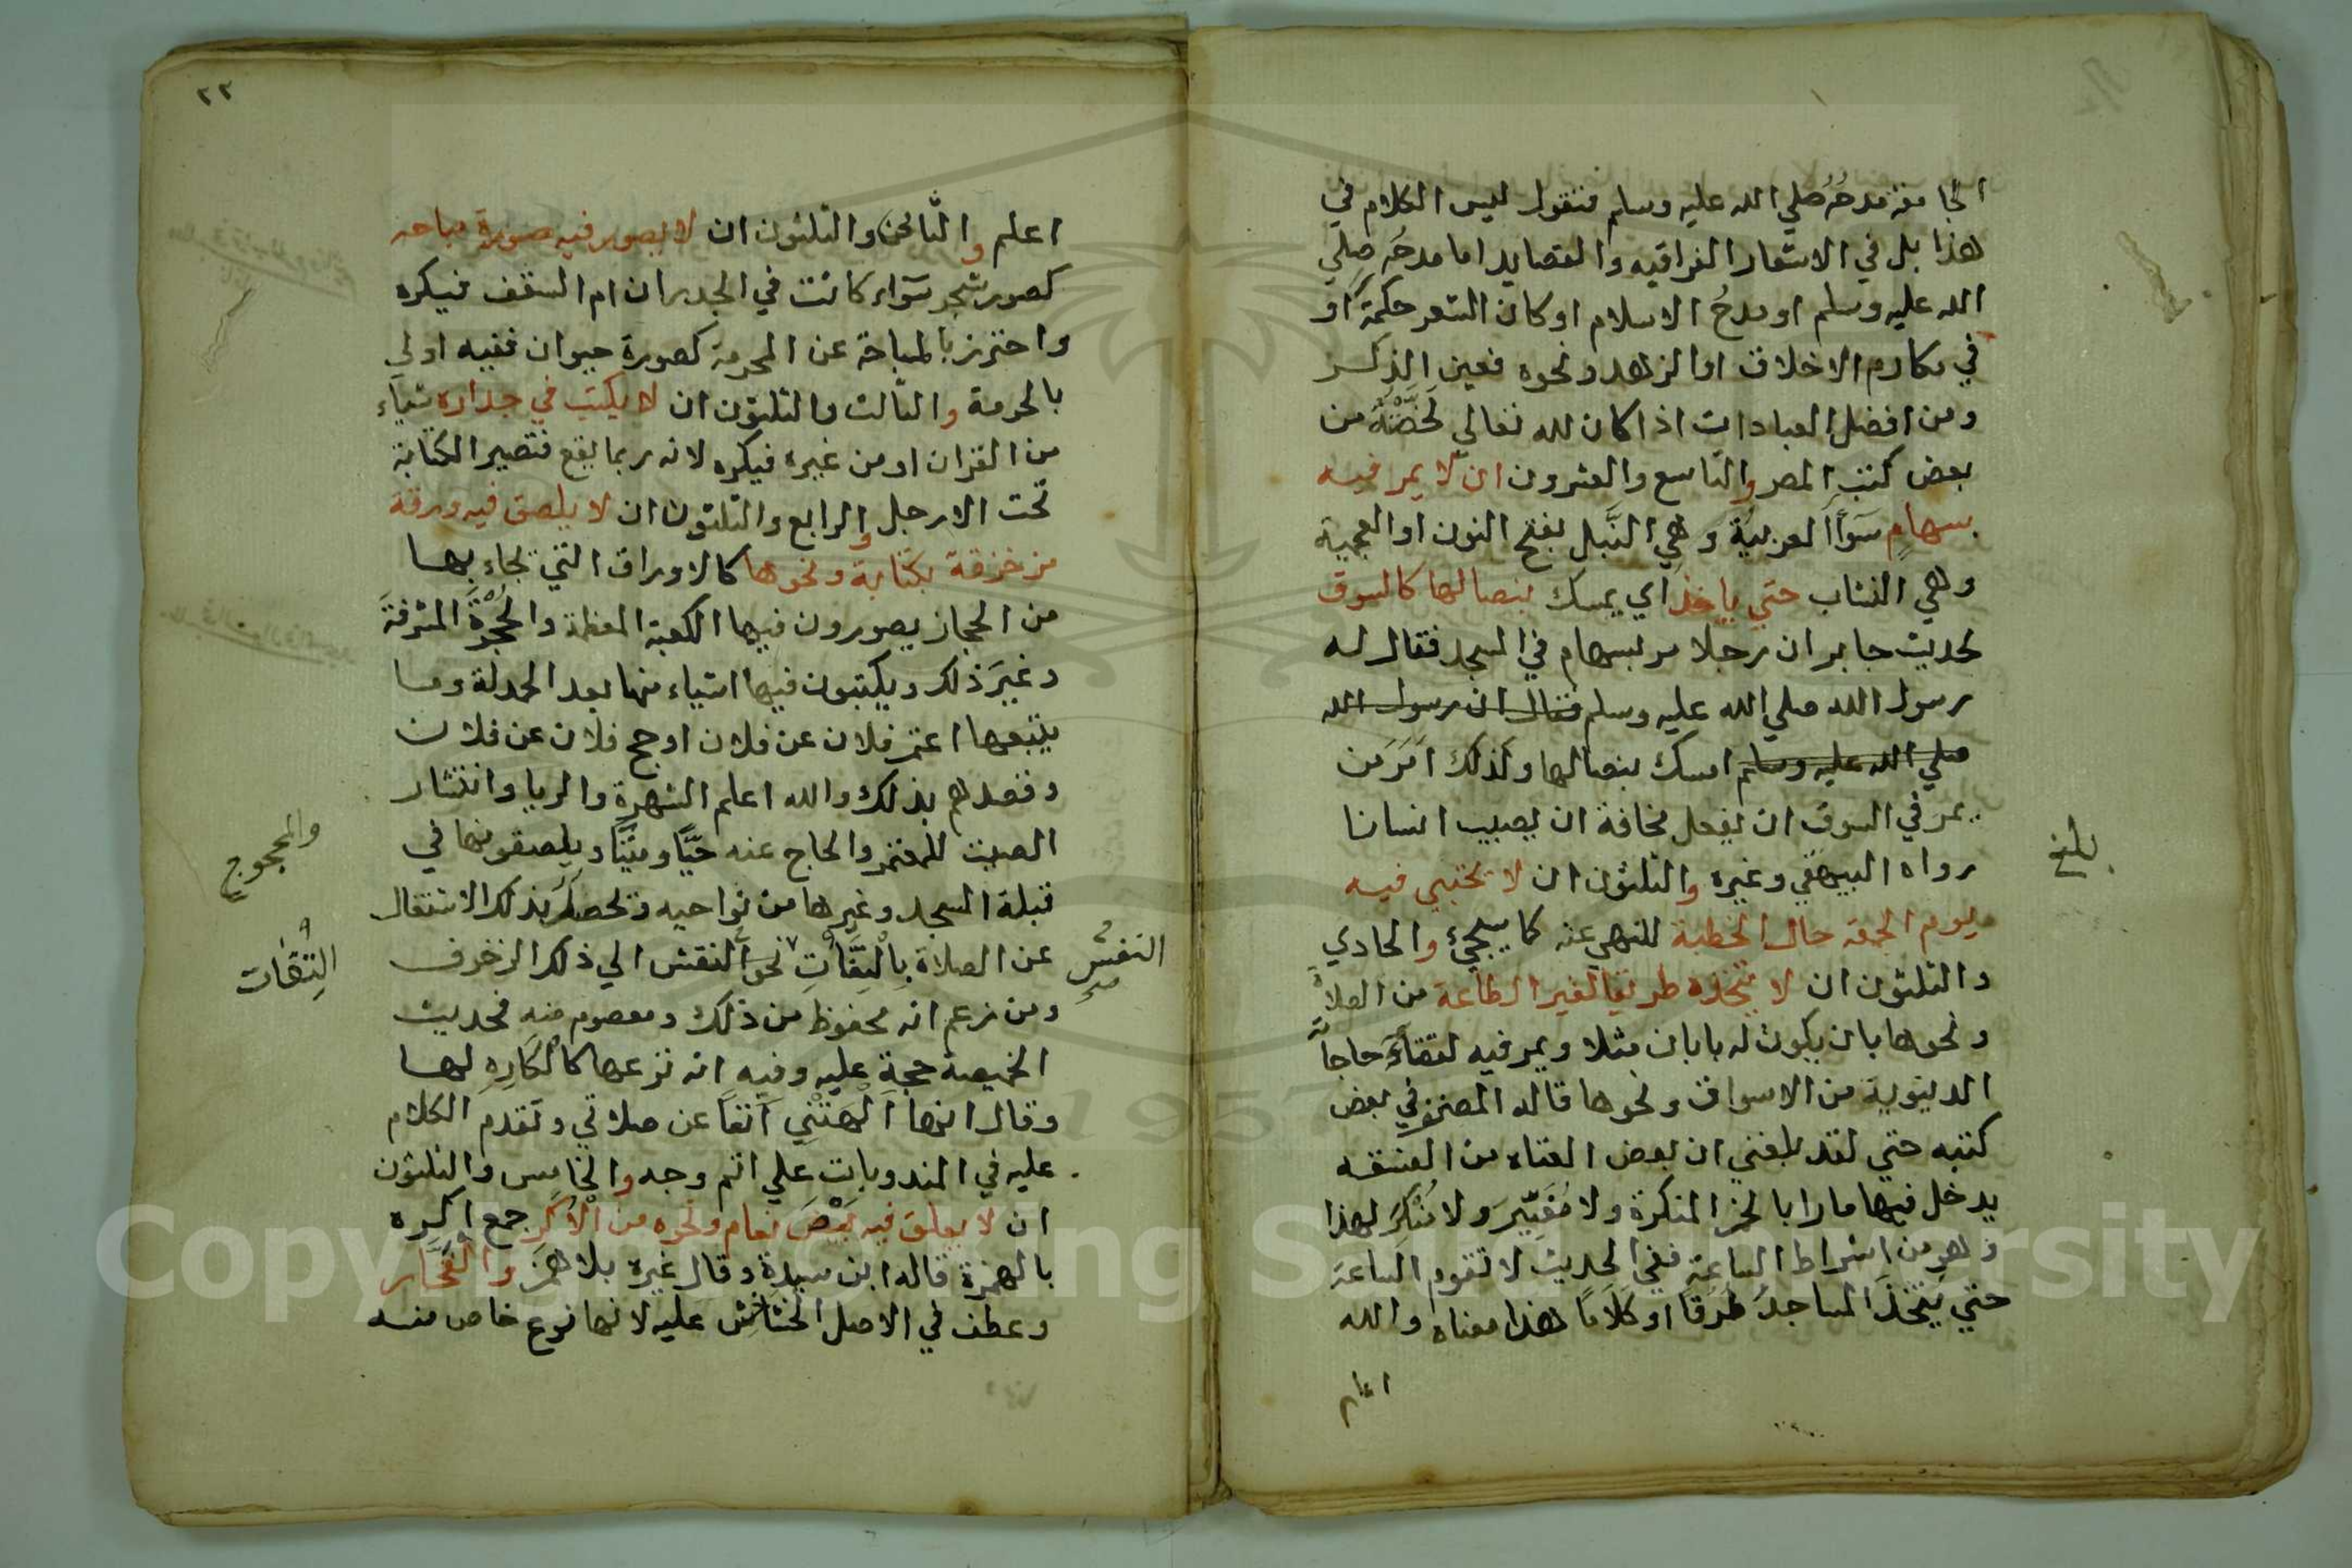 الجامعة مدحُه صلي الله عليه وسلم فنقول ليس الكلام في
هذا بل في الاشعار الغراقيه والقصايد اما مدحُه صلي
الله عليه وسلم او مدحُ الاسلام او كان الشعر حكمةً او
في مكارم الاخلاق او الزهد ونحوه فعين الذكر
ومن افضل العبادات اذا كان لله تعالي لخصّتُه من
بعض كتب المصر والتاسع والعشرون ان لا يمر فيه
بسهامٍ سَوَاً العربية وَهي النَّبل بفتح النون او العجمية
وهي النشاب حتي ياخذ اي يمسك بنصالها كالسوق
لحديث جابر ان رجلا مر بسهام في المسجد فقال له
رسول الله صلي الله عليه وسلم فقال ان رسول الله
صلي الله عليه وسلم امسك بنصالها وكذلك اَمَرَ من
يمر في السوق ان يفعل مخافة ان يصيب انسانا
رواه البيهقي وغيره والثلثون ان لا يحتبي فيه
يوم الجمعة حال الخطبة للنهي عنه كما سيجيء والحادي
والثلثون ان لا يتخذه طريقا لغير الطاعة من الصلاة
ونحوها بان يكون له بابان مثلا ويمر فيه لقضاءِ حاجاته
الدنيوية من الاسواق ونحوها قاله المصنف في بعض
كتبه حتي لقد بلغني ان بعض العتاه من الفسقه
يدخل فيها مارا بالخمر المنكرة ولا مُغَيِّرَ ولا مُنْكِرَ لهذا
وهو من اشراط الساعة ففي الحديث لا تقوم الساعة
حتي يَتَّخذَ المساجدُ طُرَقاً او كلَاماً هذا معناه والله
اعلم
بلغ
٢٢
اعلم والثاني والثلثون ان لا يصور فيه صورة مباحه
كصور شجر سَوَاء كانت في الجدران ام السقف فيكره
واحترز بالمباحة عن المحرمة كصورة حيوان ففيه اولي
بالحرمة والثالث والثلثون ان لا يكتب في جداره شياء
من القران او من غيره فيكره لانه ربما يقع فتصير الكتابة
تحت الارجل والرابع والثلثون ان لا يلصق فيه ورقة
مزخرفة بكتابة ونحوها كالاوراق التي تجاء بها
من الحجاز يصورون فيها الكعبة المعظمة والحُجْرَةَ المشرفةَ
وغيرَ ذلك ويكتبون فيها اشياء منها بعد الحمدلة وما
يتبعها اعتمر فلان عن فلان او حج فلان عن فلان
وقصدهم بذلك والله اعلم الشهرة والريا وانتشار
الصيت للمعتمر والحاج عنه حيّاً وميّتاً ويلصقونها في
والمحجوج
قبلة المسجد وغيرها من نواحيه فيحصل بذلك الاشتغال
عن الصلاة بِالْتِفَاتِ نحو النقش الي ذلك الزخرف
النفس صح
التفات
ومن زعم انه محفوظ من ذلك ومعصوم منه فحديث
الخميصة حجة عليه وفيه انه نزعها كالكَارِهِ لها
وقال انها اَلْهَتْنِي آنفاً عن صلاتي وتقدم الكلام
عليه في المندوبات علي اتم وجه والخامس والثلثون
ان لا يعلق فيه بَيْضَ نعام ونحوه من الْاُكَر جمع اكره
بالهمزة قاله ابن سيدة وقال غيره بلا همز والفخّار
وعطف في الاصل الخشاخش عليه لانها نوع خاص منه